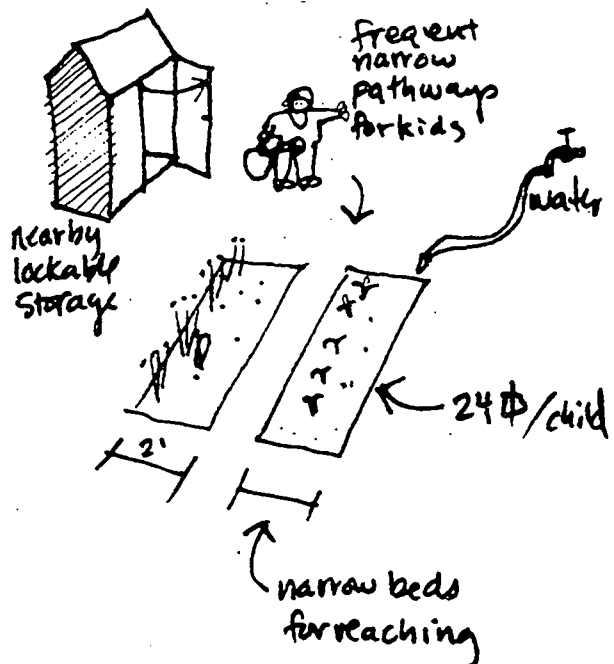 freqent
narrow
pathways
for kids
water
nearby
lockable
storage
24 ⏍/child
2'
narrow beds
for reaching